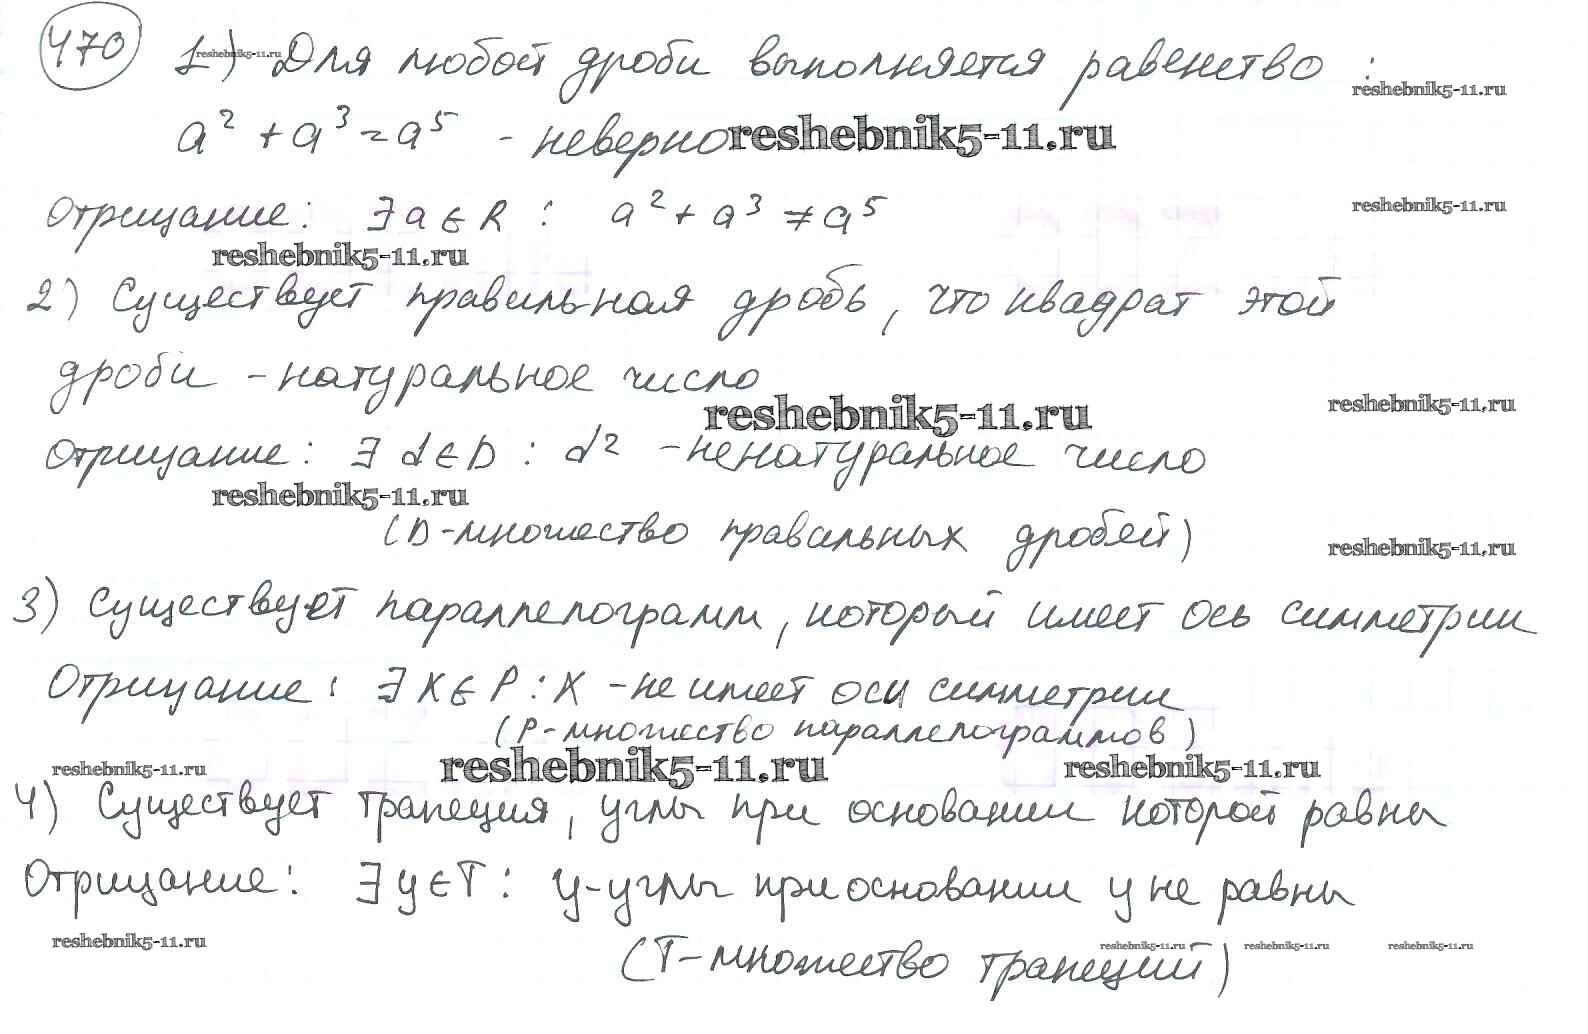 470 1) Для любой дроби выполняется равенство :
reshebnik5-11.ru
reshebnik5-11.ru
a² + a³ = a⁵ - неверно
reshebnik5-11.ru
Отрицание: ∃ a ∈ R : a² + a³ ≠ a⁵
reshebnik5-11.ru
reshebnik5-11.ru
2) Существует правильная дробь, что квадрат этой
дроби - натуральное число
reshebnik5-11.ru
reshebnik5-11.ru
Отрицание: ∃ d ∈ D : d² - ненатуральное число
reshebnik5-11.ru
(D - множество правильных дробей)
reshebnik5-11.ru
3) Существует параллелограмм, который имеет ось симметрии
Отрицание: ∃ X ∈ P : X - не имеет оси симметрии
(P - множество параллелограммов)
reshebnik5-11.ru
reshebnik5-11.ru
reshebnik5-11.ru
4) Существует трапеция, углы при основании которой равны
Отрицание: ∃ y ∈ T : y - углы при основании y не равны
reshebnik5-11.ru
reshebnik5-11.ru
reshebnik5-11.ru
reshebnik5-11.ru
(T - множество трапеций)